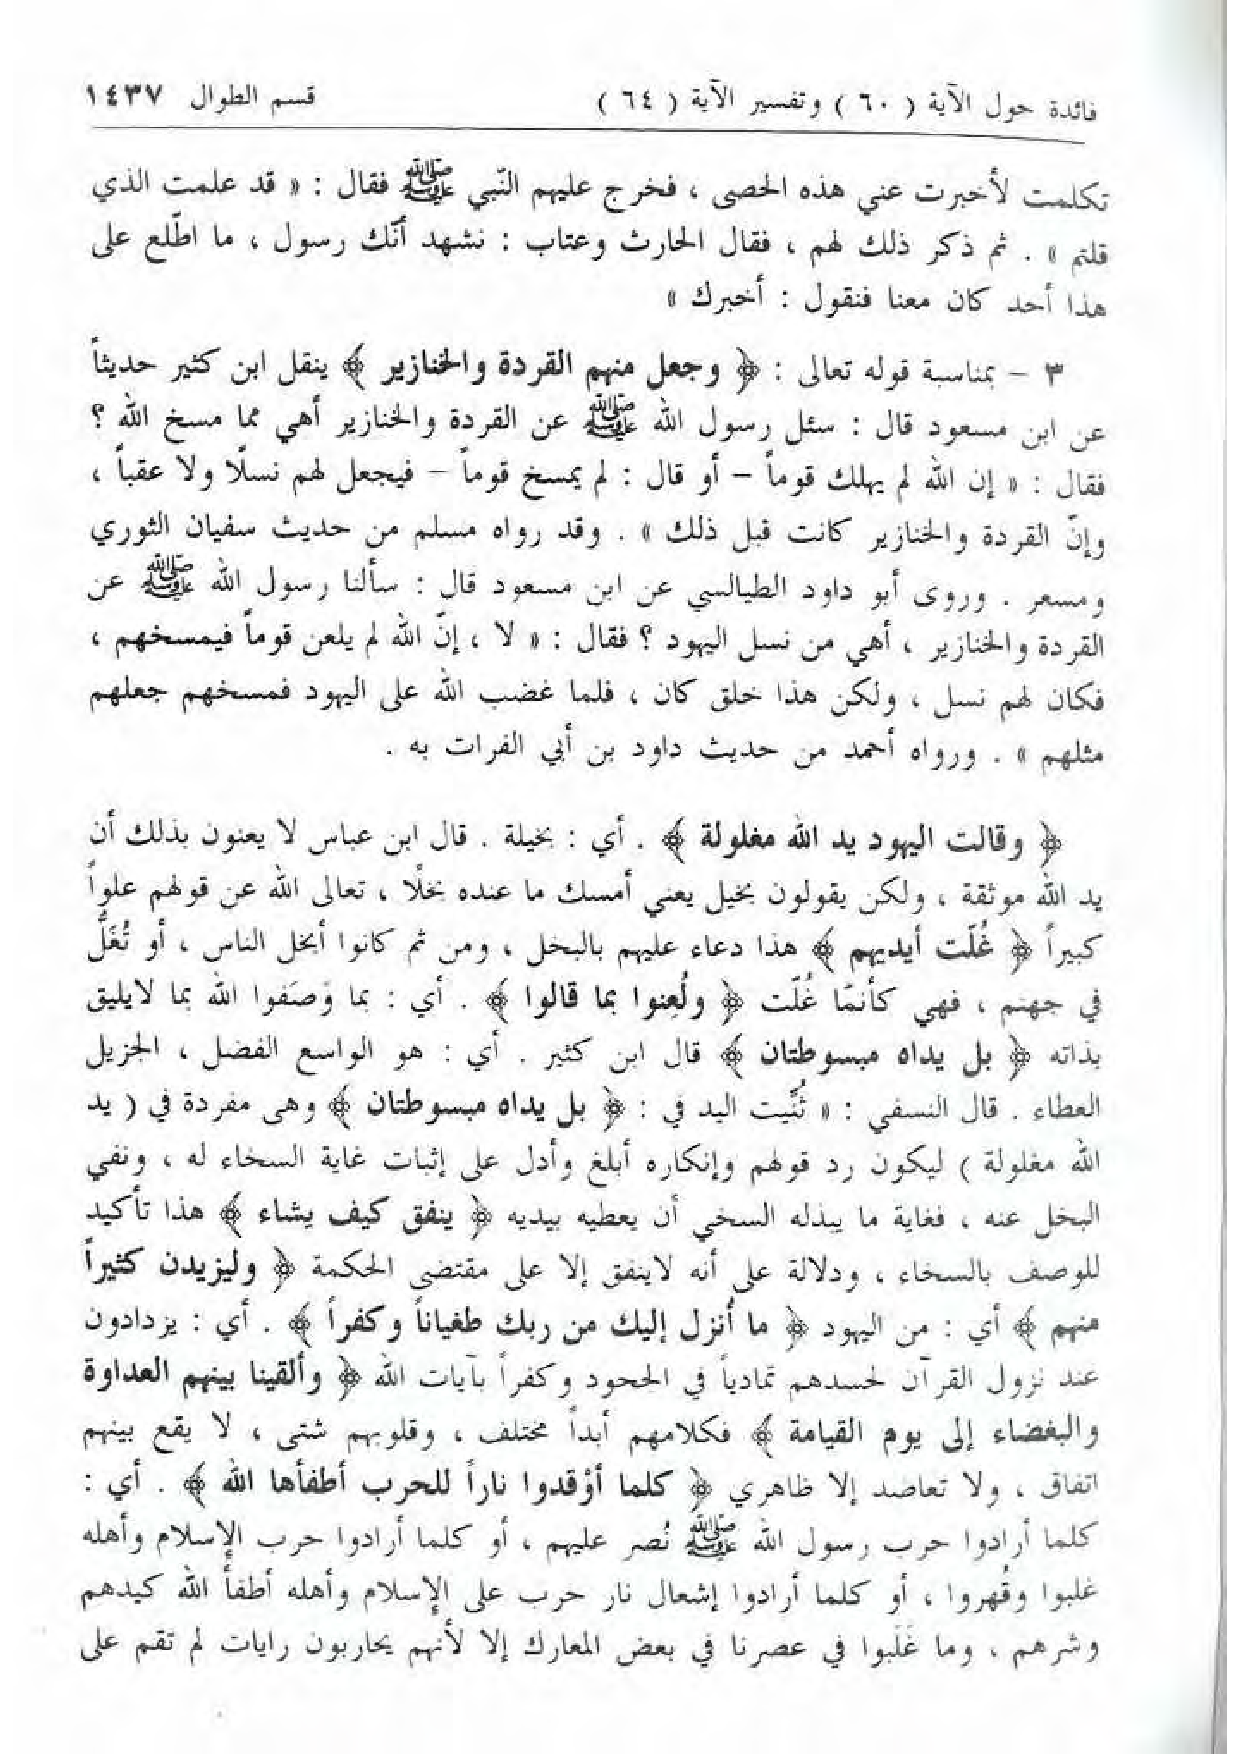 فائدة حول الآية ( ٦٠ ) وتفسير الآية ( ٦٤ ) قسم الطوال ١٤٣٧
تكلمت لأخبرت عني هذه الحصى ، فخرج عليهم النّبي ﷺ فقال : « قد علمت الذي
قلتم » . ثم ذكر ذلك لهم ، فقال الحارث وعتاب : نشهد أنّك رسول ، ما اطّلع على
هذا أحد كان معنا فنقول : أخبرك »
٣ – بمناسبة قوله تعالى : ﴿ وجعل منهم القردة والخنازير ﴾ ينقل ابن كثير حديثاً
عن ابن مسعود قال : سئل رسول الله ﷺ عن القردة والخنازير أهي مما مسخ الله ؟
فقال : « إن الله لم يهلك قوماً – أو قال : لم يمسخ قوماً – فيجعل لهم نسلًا ولا عقباً ،
وإنّ القردة والخنازير كانت قبل ذلك » . وقد رواه مسلم من حديث سفيان الثوري
ومسعر . وروى أبو داود الطيالسي عن ابن مسعود قال : سألنا رسول الله ﷺ عن
القردة والخنازير ، أهي من نسل اليهود ؟ فقال : « لا ، إنّ الله لم يلعن قوماً فيمسخهم ،
فكان لهم نسل ، ولكن هذا خلق كان ، فلما غضب الله على اليهود فمسخهم جعلهم
مثلهم » . ورواه أحمد من حديث داود بن أبي الفرات به .
﴿ وقالت اليهود يد الله مغلولة ﴾ . أي : بخيلة . قال ابن عباس لا يعنون بذلك أن
يد الله موثقة ، ولكن يقولون بخيل يعني أمسك ما عنده بخلًا ، تعالى الله عن قولهم علواً
كبيراً ﴿ غُلّت أيديهم ﴾ هذا دعاء عليهم بالبخل ، ومن ثم كانوا أبخل الناس ، أو تُغَلُّ
في جهنم ، فهي كأنمّا غُلّت ﴿ ولُعِنوا بما قالوا ﴾ . أي : بما وَصَفوا الله بما لايليق
بذاته ﴿ بل يداه مبسوطتان ﴾ قال ابن كثير . أي : هو الواسع الفضل ، الجزيل
العطاء . قال النسفي : « ثُنّيت اليد في : ﴿ بل يداه مبسوطتان ﴾ وهى مفردة في ( يد
الله مغلولة ) ليكون رد قولهم وإنكاره أبلغ وأدل على إثبات غاية السخاء له ، ونفي
البخل عنه ، فغاية ما يبذله السخي أن يعطيه بيديه ﴿ ينفق كيف يشاء ﴾ هذا تأكيد
للوصف بالسخاء ، ودلالة على أنه لاينفق إلا على مقتضى الحكمة ﴿ وليزيدن كثيراً
منهم ﴾ أي : من اليهود ﴿ ما أُنزل إليك من ربك طغياناً وكفراً ﴾ . أي : يزدادون
عند نزول القرآن لحسدهم تمادياً في الجحود وكفراً بآيات الله ﴿ وألقينا بينهم العداوة
والبغضاء إلى يوم القيامة ﴾ فكلامهم أبداً مختلف ، وقلوبهم شتى ، لا يقع بينهم
اتفاق ، ولا تعاضد إلا ظاهري ﴿ كلما أوْقدوا ناراً للحرب أطفأها الله ﴾ . أي :
كلما أرادوا حرب رسول الله ﷺ نُصر عليهم ، أو كلما أرادوا حرب الإسلام وأهله
غلبوا وقُهروا ، أو كلما أرادوا إشعال نار حرب على الإسلام وأهله أطفأ الله كيدهم
وشرهم ، وما غَلَبوا في عصرنا في بعض المعارك إلا لأنهم يحاربون رايات لم تقم على